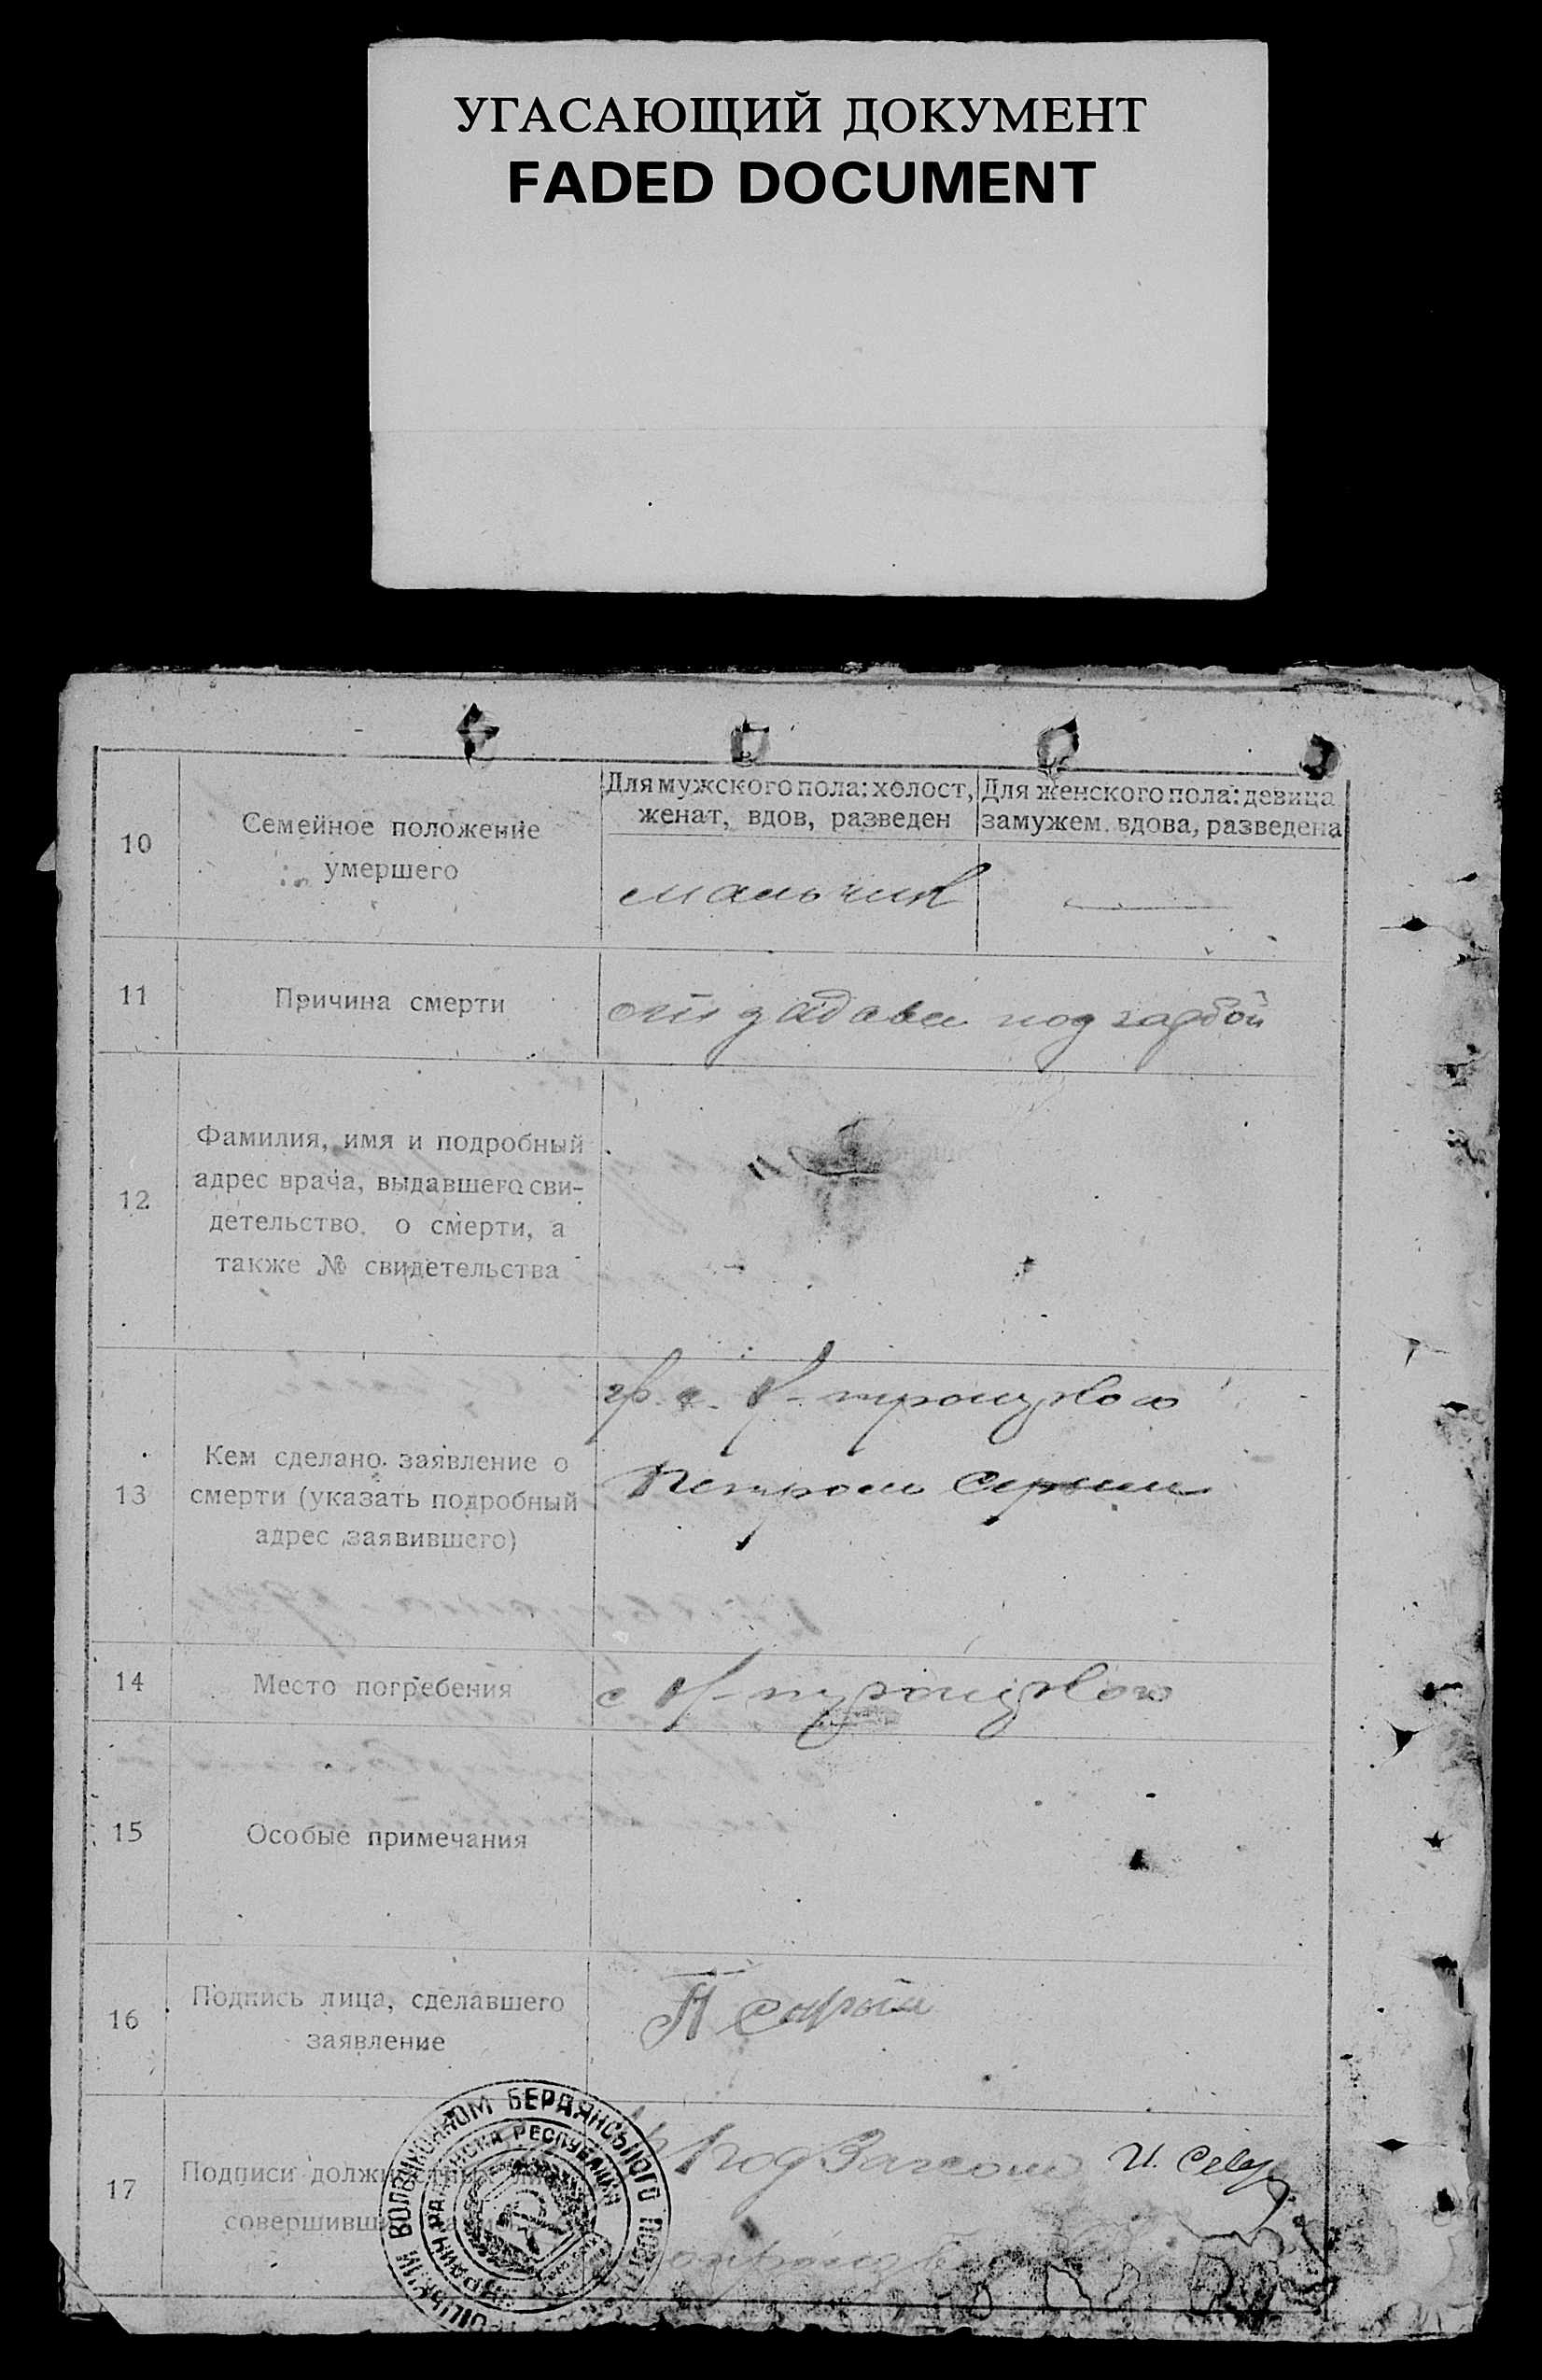 УГАСАЮЩИЙ ДОКУМЕНТ
FADED DOCUMENT
10
Семейное положение
умершего
Для мужского пола: холост,
женат, вдов, разведен
Для женского пола: девица
замужем. вдова, разведена
мальчик
11
Причина смерти
под гарбой
12
Фамилия, имя и подробный
адрес врача, выдавшего сви-
детельство о смерти, а
также № свидетельства
13
Кем сделано заявление о
смерти (указать подробный
адрес заявившего)
гр. с. троицкого
Петром Серым
14
Место погребения
с троицкого
15
Особые примечания
16
Подпись лица, сделавшего
заявление
П Серый
17
Подписи
совершивши
ВОЛВИКОНКОМ БЕРДЯНСЬКОГО
РЕСПУБЛИКА
Загсом